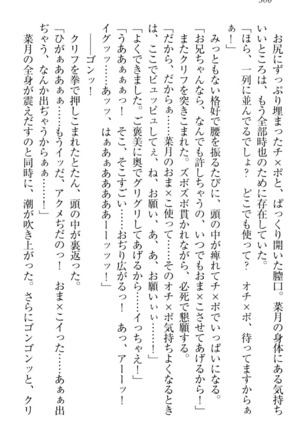 お尻にずっぷり埋まったチ×ポと、ぱっくり開いた膣口。菜月の身体にある気持ち
いいところは、もう全部時也のために存在していた。
「ほら、一列に並んでるでしょ？　どこでも使って？　オチ×ポ、待ってますからぁ
……あっ、はぁぁああっ」
みっともない格好で腰を振るたびに、頭の中が痺れてチ×ポのことしか考えられない。
「お兄ちゃんなら、なんでも許しちゃうの、いつでもおま×こさせてあげるから！」
またクリフを突きこまれた。ズボズボ貫かれながら、必死で懇願する。
「だから、だからぁ……菜月のおま×こ使って……そのオチ×ポ気持ちよくなるとき
は、ここでビュッビュしてぇ、ね、お願い、あ、あ、お願いいぃ……！」
「よくできました。ご褒美に奥でグリグリしてあげるから……イっちゃえ！」
「うああぁぁっ！　そこ、そこすごい……おぢり広がるぅっ！　あっ、アーーッ！
イグッ……あッッ、はぁぁああああーーッッッ！」
――ゴンッ！
クリフを拳で押しこまれたとたん、頭の中が裏返った。
「ひがぁぁああぁ……もうイッだ、アクメぢだのっ！　おま×こイッた……あぁぁ出
ちゃう、なんか出ちゃうからぁぁ……！」
菜月の全身が震えだすのと同時に、潮が吹き上がった。さらにゴンゴンッと、クリ